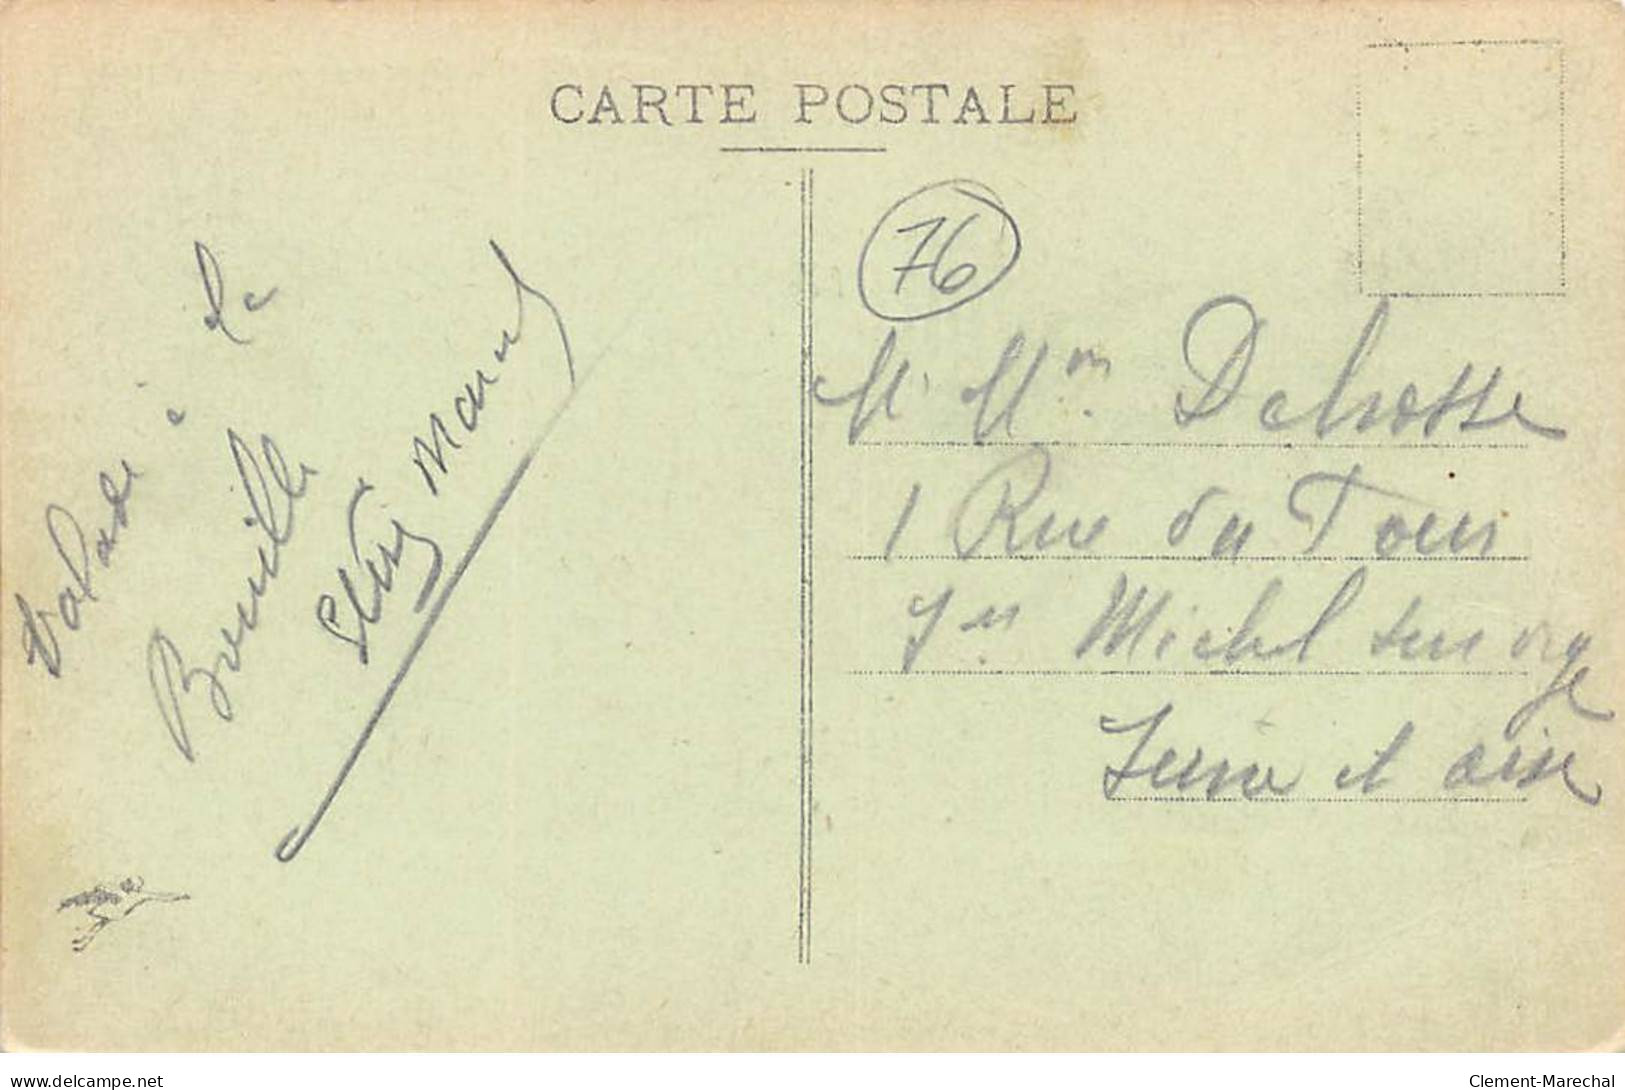 CARTE POSTALE
76
à la
Bouille
M. Mme Delrosse
1 Rue du Four
Michel sur orge
Seine et oise
www.delcampe.net
Clement-Marechal